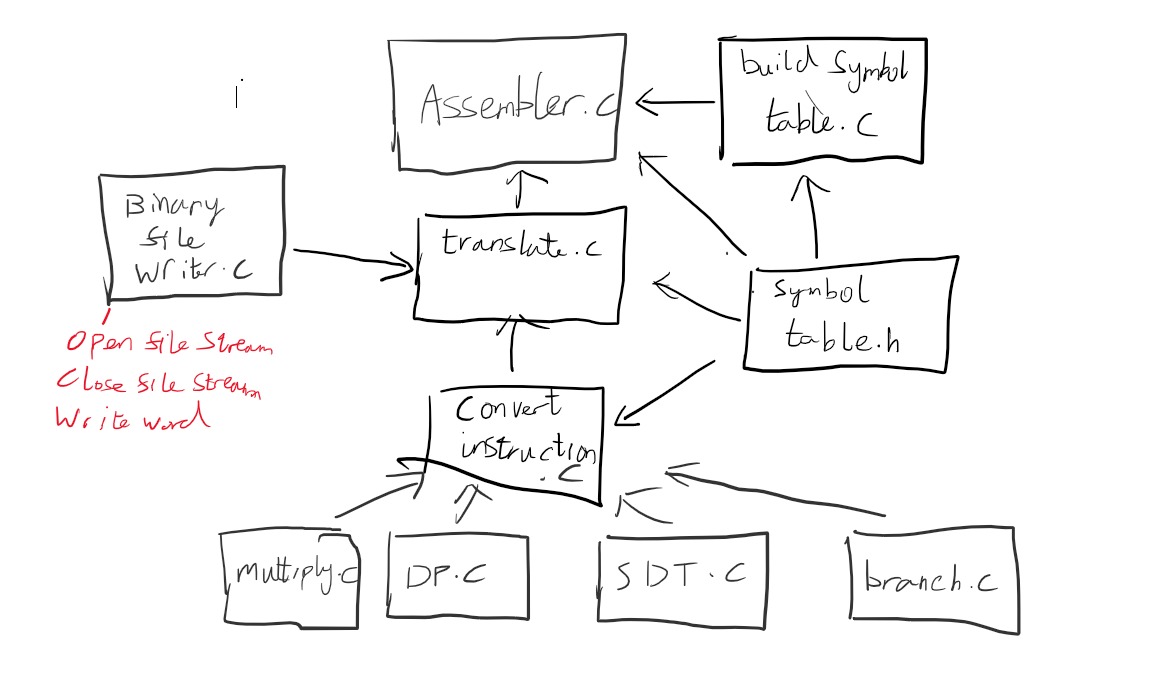 Assembler.c
build symbol
table.c
Binary
file
writer.c
translate.c
symbol
table.h
Open file stream
Close file stream
Write word
Convert
instruction
.c
multiply.c
DP.c
SDT.c
branch.c